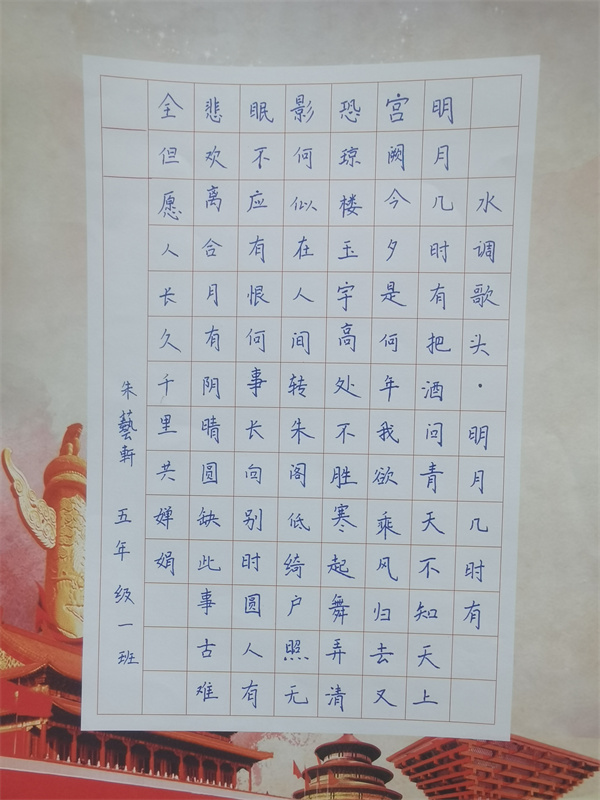 水调歌头·明月几时有
明月几时有把酒问青天不知天上
宫阙今夕是何年我欲乘风归去又
恐琼楼玉宇高处不胜寒起舞弄清
影何似在人间转朱阁低绮户照无
眠不应有恨何事长向别时圆人有
悲欢离合月有阴晴圆缺此事古难
全但愿人长久千里共婵娟
朱藝軒 五年级一班